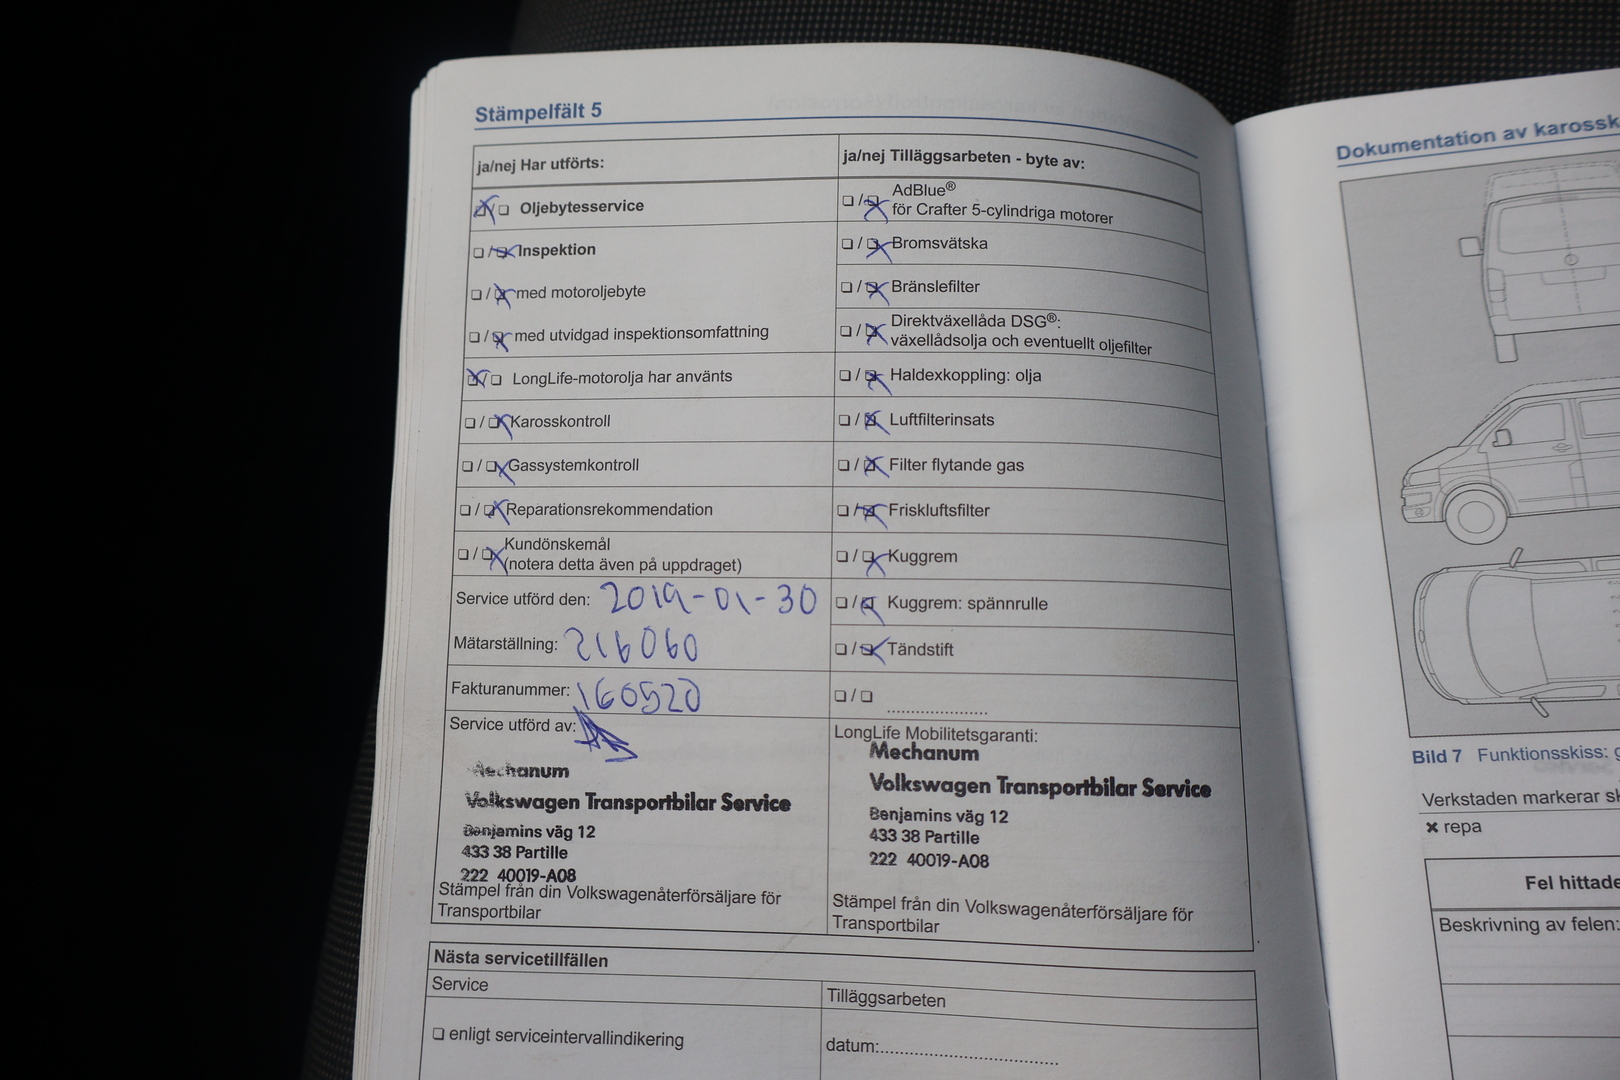 Stämpelfält 5
ja/nej Har utförts:
Oljebytesservice
Inspektion
med motoroljebyte
med utvidgad inspektionsomfattning
LongLife-motorolja har använts
Karosskontroll
Gassystemkontroll
Reparationsrekommendation
Kundönskemål
(notera detta även på uppdraget)
Service utförd den: 2019-01-30
Mätarställning: 216060
Fakturanummer: 160520
Service utförd av:
Mechanum
Volkswagen Transportbilar Service
Benjamins väg 12
433 38 Partille
222 40019-A08
Stämpel från din Volkswagenåterförsäljare för
Transportbilar
ja/nej Tilläggsarbeten - byte av:
AdBlue®
för Crafter 5-cylindriga motorer
Bromsvätska
Bränslefilter
Direktväxellåda DSG®:
växellådsolja och eventuellt oljefilter
Haldexkoppling: olja
Luftfilterinsats
Filter flytande gas
Friskluftsfilter
Kuggrem
Kuggrem: spännrulle
Tändstift
LongLife Mobilitetsgaranti:
Mechanum
Volkswagen Transportbilar Service
Benjamins väg 12
433 38 Partille
222 40019-A08
Stämpel från din Volkswagenåterförsäljare för
Transportbilar
Nästa servicetillfällen
Service
enligt serviceintervallindikering
Tilläggsarbeten
datum:
Dokumentation av karossk
Bild 7 Funktionsskiss: g
Verkstaden markerar sk
repa
Fel hittade
Beskrivning av felen: